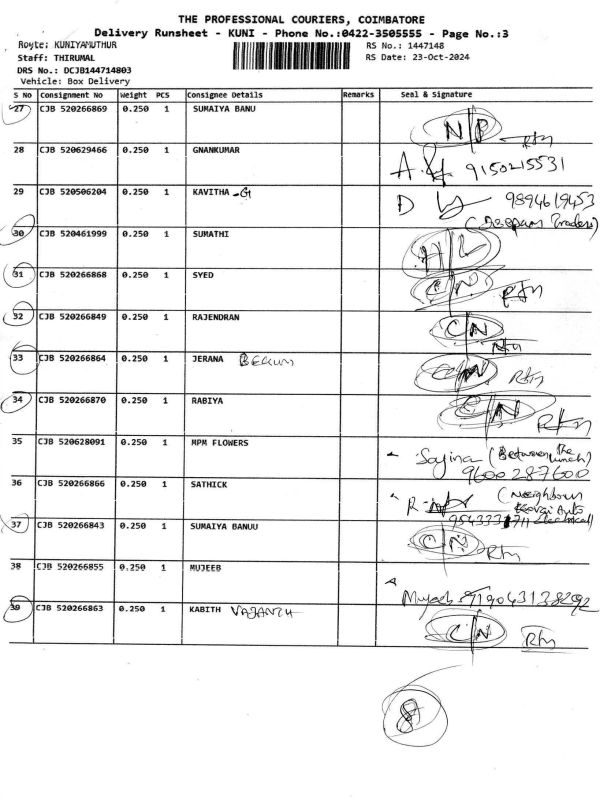 THE PROFESSIONAL COURIERS, COIMBATORE
Delivery Runsheet - KUNI - Phone No.:0422-3505555 - Page No.:3
Route: KUNIYAMUTHUR RS No.: 1447148
Staff: THIRUMAL RS Date: 23-Oct-2024
DRS No.: DCJB144714803
Vehicle: Box Delivery
S No Consignment No Weight PCS Consignee Details Remarks Seal & Signature
27 CJB 520266869 0.250 1 SUMAIYA BANU N/P Rtn
28 CJB 520629466 0.250 1 GNANKUMAR 9150215531
29 CJB 520506204 0.250 1 KAVITHA -G D 9894619453
(Deepam Traders)
30 CJB 520461999 0.250 1 SUMATHI H/L
31 CJB 520266868 0.250 1 SYED C/N Rtn
32 CJB 520266849 0.250 1 RAJENDRAN C/N Rtn
33 CJB 520266864 0.250 1 JERANA BEGUM C/N Rtn
34 CJB 520266870 0.250 1 RABIYA C/N Rtn
35 CJB 520628091 0.250 1 MPM FLOWERS Sajina (Between The
9600287600
36 CJB 520266866 0.250 1 SATHICK (Neighbour
Kovai Auto
Electrical)
37 CJB 520266843 0.250 1 SUMAIYA BANUU C/N Rtn
38 CJB 520266855 0.250 1 MUJEEB
Mujeeb 919043138292
39 CJB 520266863 0.250 1 KABITH VASANTH C/N Rtn